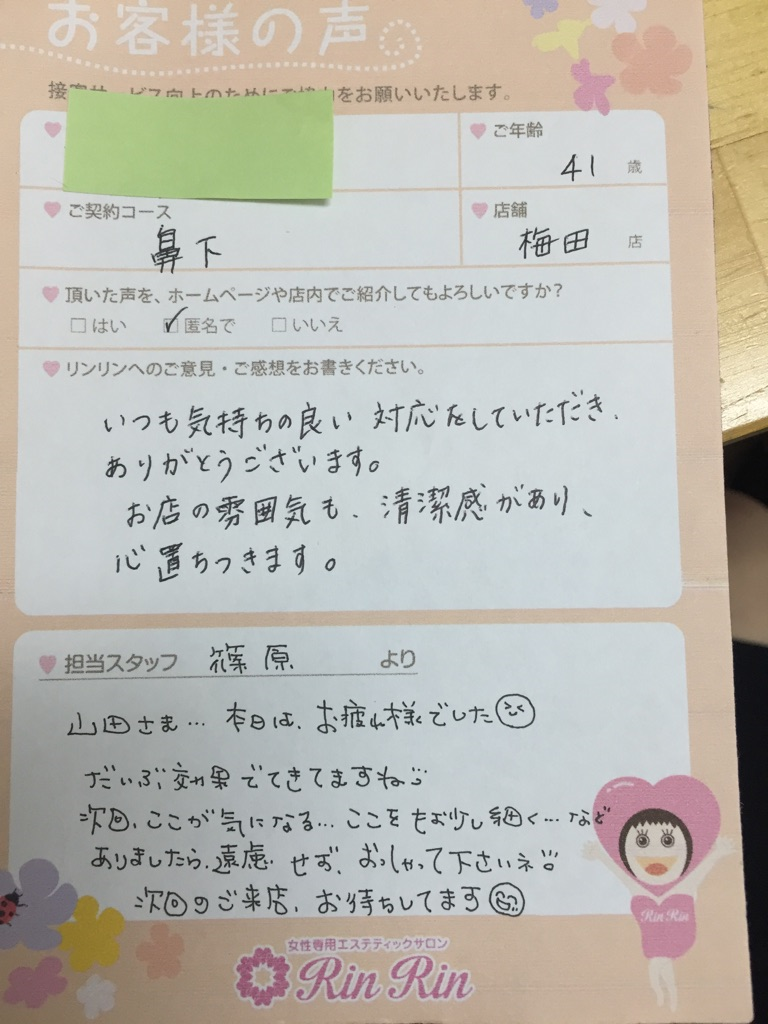 お客様の声
接客サービス向上のためにご協力をお願いいたします。
ご年齢
41 歳
ご契約コース
鼻下
店舗
梅田 店
頂いた声を、ホームページや店内でご紹介してもよろしいですか？
□はい ☑匿名で □いいえ
リンリンへのご意見・ご感想をお書きください。
いつも気持ちの良い 対応をしていただき、
ありがとうございます。
お店の雰囲気も、清潔感があり、
心置ちつきます。
担当スタッフ 篠原 より
山田さま… 本日は、お疲れ様でした
だいぶ効果でてきてますね
次回、ここが気になる… ここをもお少し細く… など
ありましたら、遠慮せず、おっしゃって下さいネ
次回のご来店、お待ちしてます
Rin Rin
女性専用エステティックサロン
Rin Rin